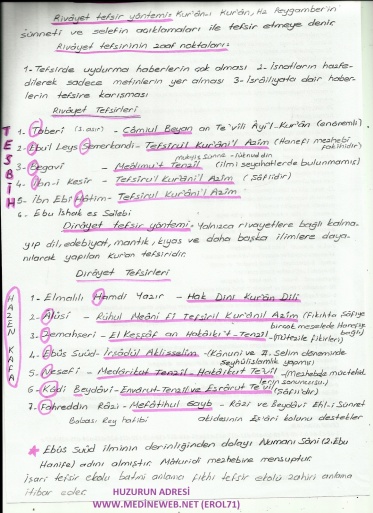 Rivâyet tefsir yöntemi: Kur'ân-ı Kur'ân, Hz Peygamber'in
sünneti ve selefin açıklamaları ile tefsir etmeye denir
Rivâyet tefsirinin zaaf noktaları:
1- Tefsirde uydurma haberlerin çok olması 2- İsnatların hazfe-
dilerek sadece metinlerin yer alması 3- İsrâiliyata dair haber-
lerin tefsire karışması
Rivâyet Tefsirleri
TESBİH
1- Taberi (3. asır) - Câmiul Beyan an Te'vîli Âyi'l-Kur'ân (önemli)
2- Ebul Leys Semerkandi - Tefsîrul Kur'âni'l Azîm (Hanefi mezhebi
fakihidir)
3- Begavî - Meâlimu't Tenzîl (ilmi seyahatlerde bulunmamış)
4- İbn-i Kesîr - Tefsîrul Kur'âni'l Azîm (Şâfiîdir)
5- İbn Ebî Hâtim - Tefsîrul Kur'âni'l Azîm
6- Ebu İshak es Salebi
Dirâyet tefsir yöntemi - Yalnızca rivayetlere bağlı kalma-
yıp dil, edebiyat, mantık, kıyas ve daha başka ilimlere daya-
nılarak yapılan Kur'an tefsiridir.
Dirâyet Tefsirleri
HAZEN KAFA
1- Elmalılı Hamdi Yazır - Hak Dini Kur'ân Dili
2- Âlûsi - Rûhul Meâni fî Tefsîril Kur'ânil Azîm (Fıkıhta Şâfiye
bircok meselede Hanefiye
bağlı)
3- Zemahşeri - El Keşşâf an Hakâikı't-Tenzîl - (Mûtezile fikirleri)
4- Ebûs Suûd - İrşâdül Aklisselim - (Kânuni ve II. Selim döneminde
şeyhülislamlık yapmış)
5- Nesefi - Medârikut Tenzîl - Hakâikut Te'vîl - (Mezhebde müctehid
lerin sonuncusu)
6- Kâdi Beydâvi - Envârut-Tenzîl ve Esrârut Te'vîl (Şâfiîdir)
7. Fahreddin Râzi - Mefâtihul Gayb - Râzi ve Beydâvi Ehl-i Sünnet
Babası Rey hatibi akidesinin Eş'ari kolunu destekler
Ebûs Suûd ilminin derinliğinden dolayı Numanı Sâni (2. Ebu
Hanife) adını almıştır. Mâturidi mezhebine mensuptur.
İşari tefsir ekolu batıni anlama fıkhi tefsir ekolü zahiri anlama
itibar eder.
HUZURUN ADRESİ
WWW.MEDİNEWEB.NET (EROL71)